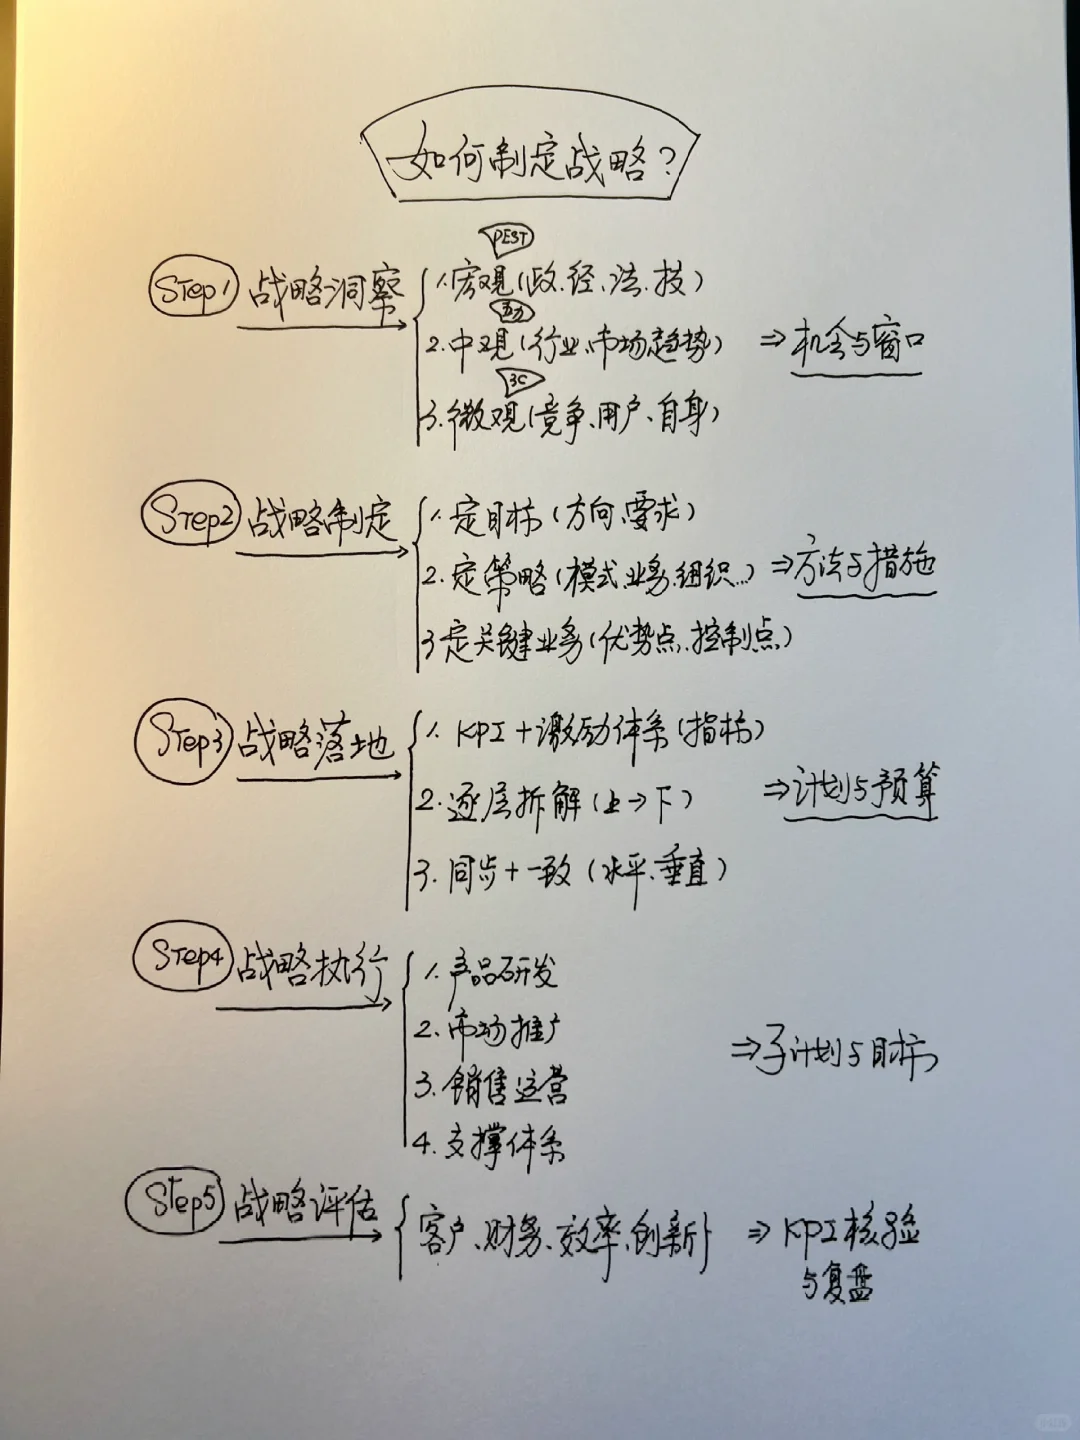 如何制定战略?
PEST
Step1 战略洞察
1.宏观(政.经.法.技)
五力
2.中观(行业、市场趋势)
⇒机会与窗口
3C
3.微观(竞争、用户、自身)
Step2 战略制定
1.定目标(方向、要求)
2.定策略(模式.业务.组织...)
⇒方法与措施
3定关键业务(优势点.控制点)
Step3 战略落地
1.KPI+激励体系(指标)
2.逐层拆解(上→下)
⇒计划与预算
3.同步+一致(水平、垂直)
Step4 战略执行
1.产品研发
2.市场推广
⇒子计划与目标
3.销售运营
4.支撑体系
Step5 战略评估
{客户、财务、效率、创新}
⇒KPI核验
与复盘